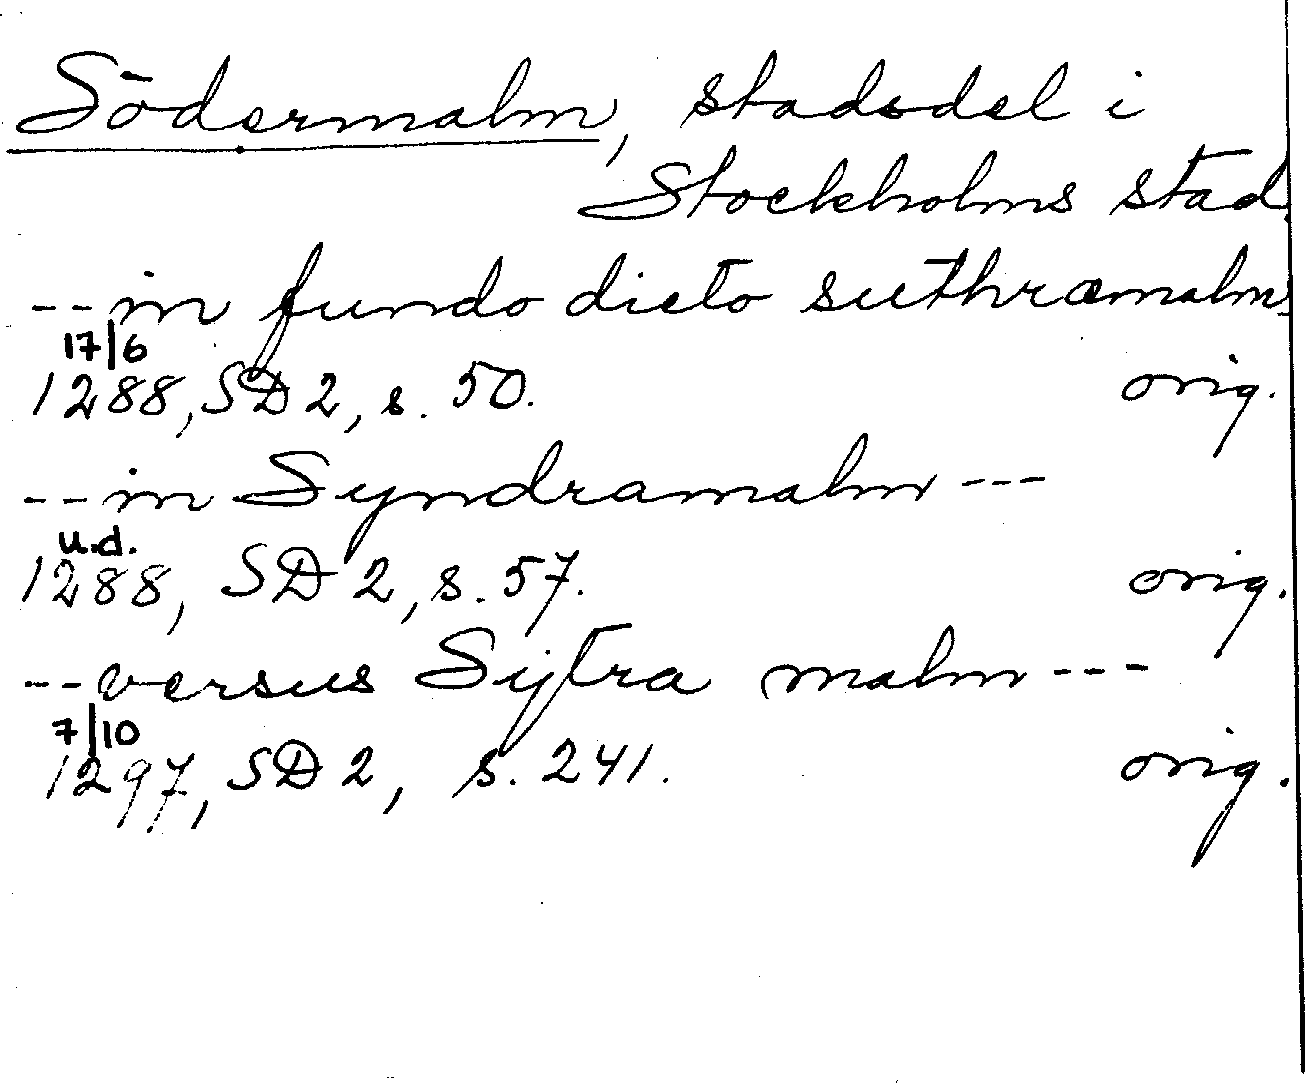 Södermalm, stadsdel i
Stockholms stad.
--in fundo dicto suthræmalm
17/6
1288, SD 2, s. 50. orig.
--in Syndramalm ---
u.d.
1288, SD 2, s. 57. orig.
--versus Sytra malm ---
7/10
1297, SD 2, s. 241. orig.